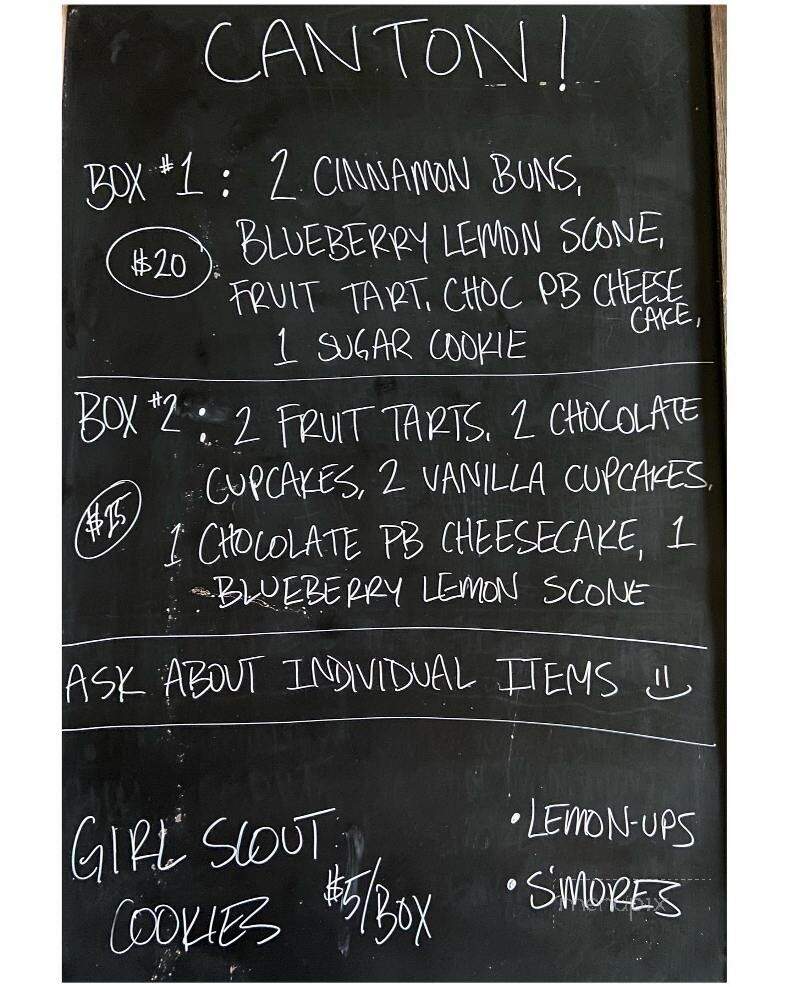 CANTON!
BOX #1: 2 CINNAMON BUNS,
$20 BLUEBERRY LEMON SCONE,
FRUIT TART, CHOC PB CHEESE
CAKE,
1 SUGAR COOKIE
BOX #2: 2 FRUIT TARTS, 2 CHOCOLATE
CUPCAKES, 2 VANILLA CUPCAKES,
1 CHOCOLATE PB CHEESECAKE, 1
BLUEBERRY LEMON SCONE
ASK ABOUT INDIVIDUAL ITEMS
GIRL SCOUT
COOKIES $5/BOX
• LEMON-UPS
• S'MORES
menupix